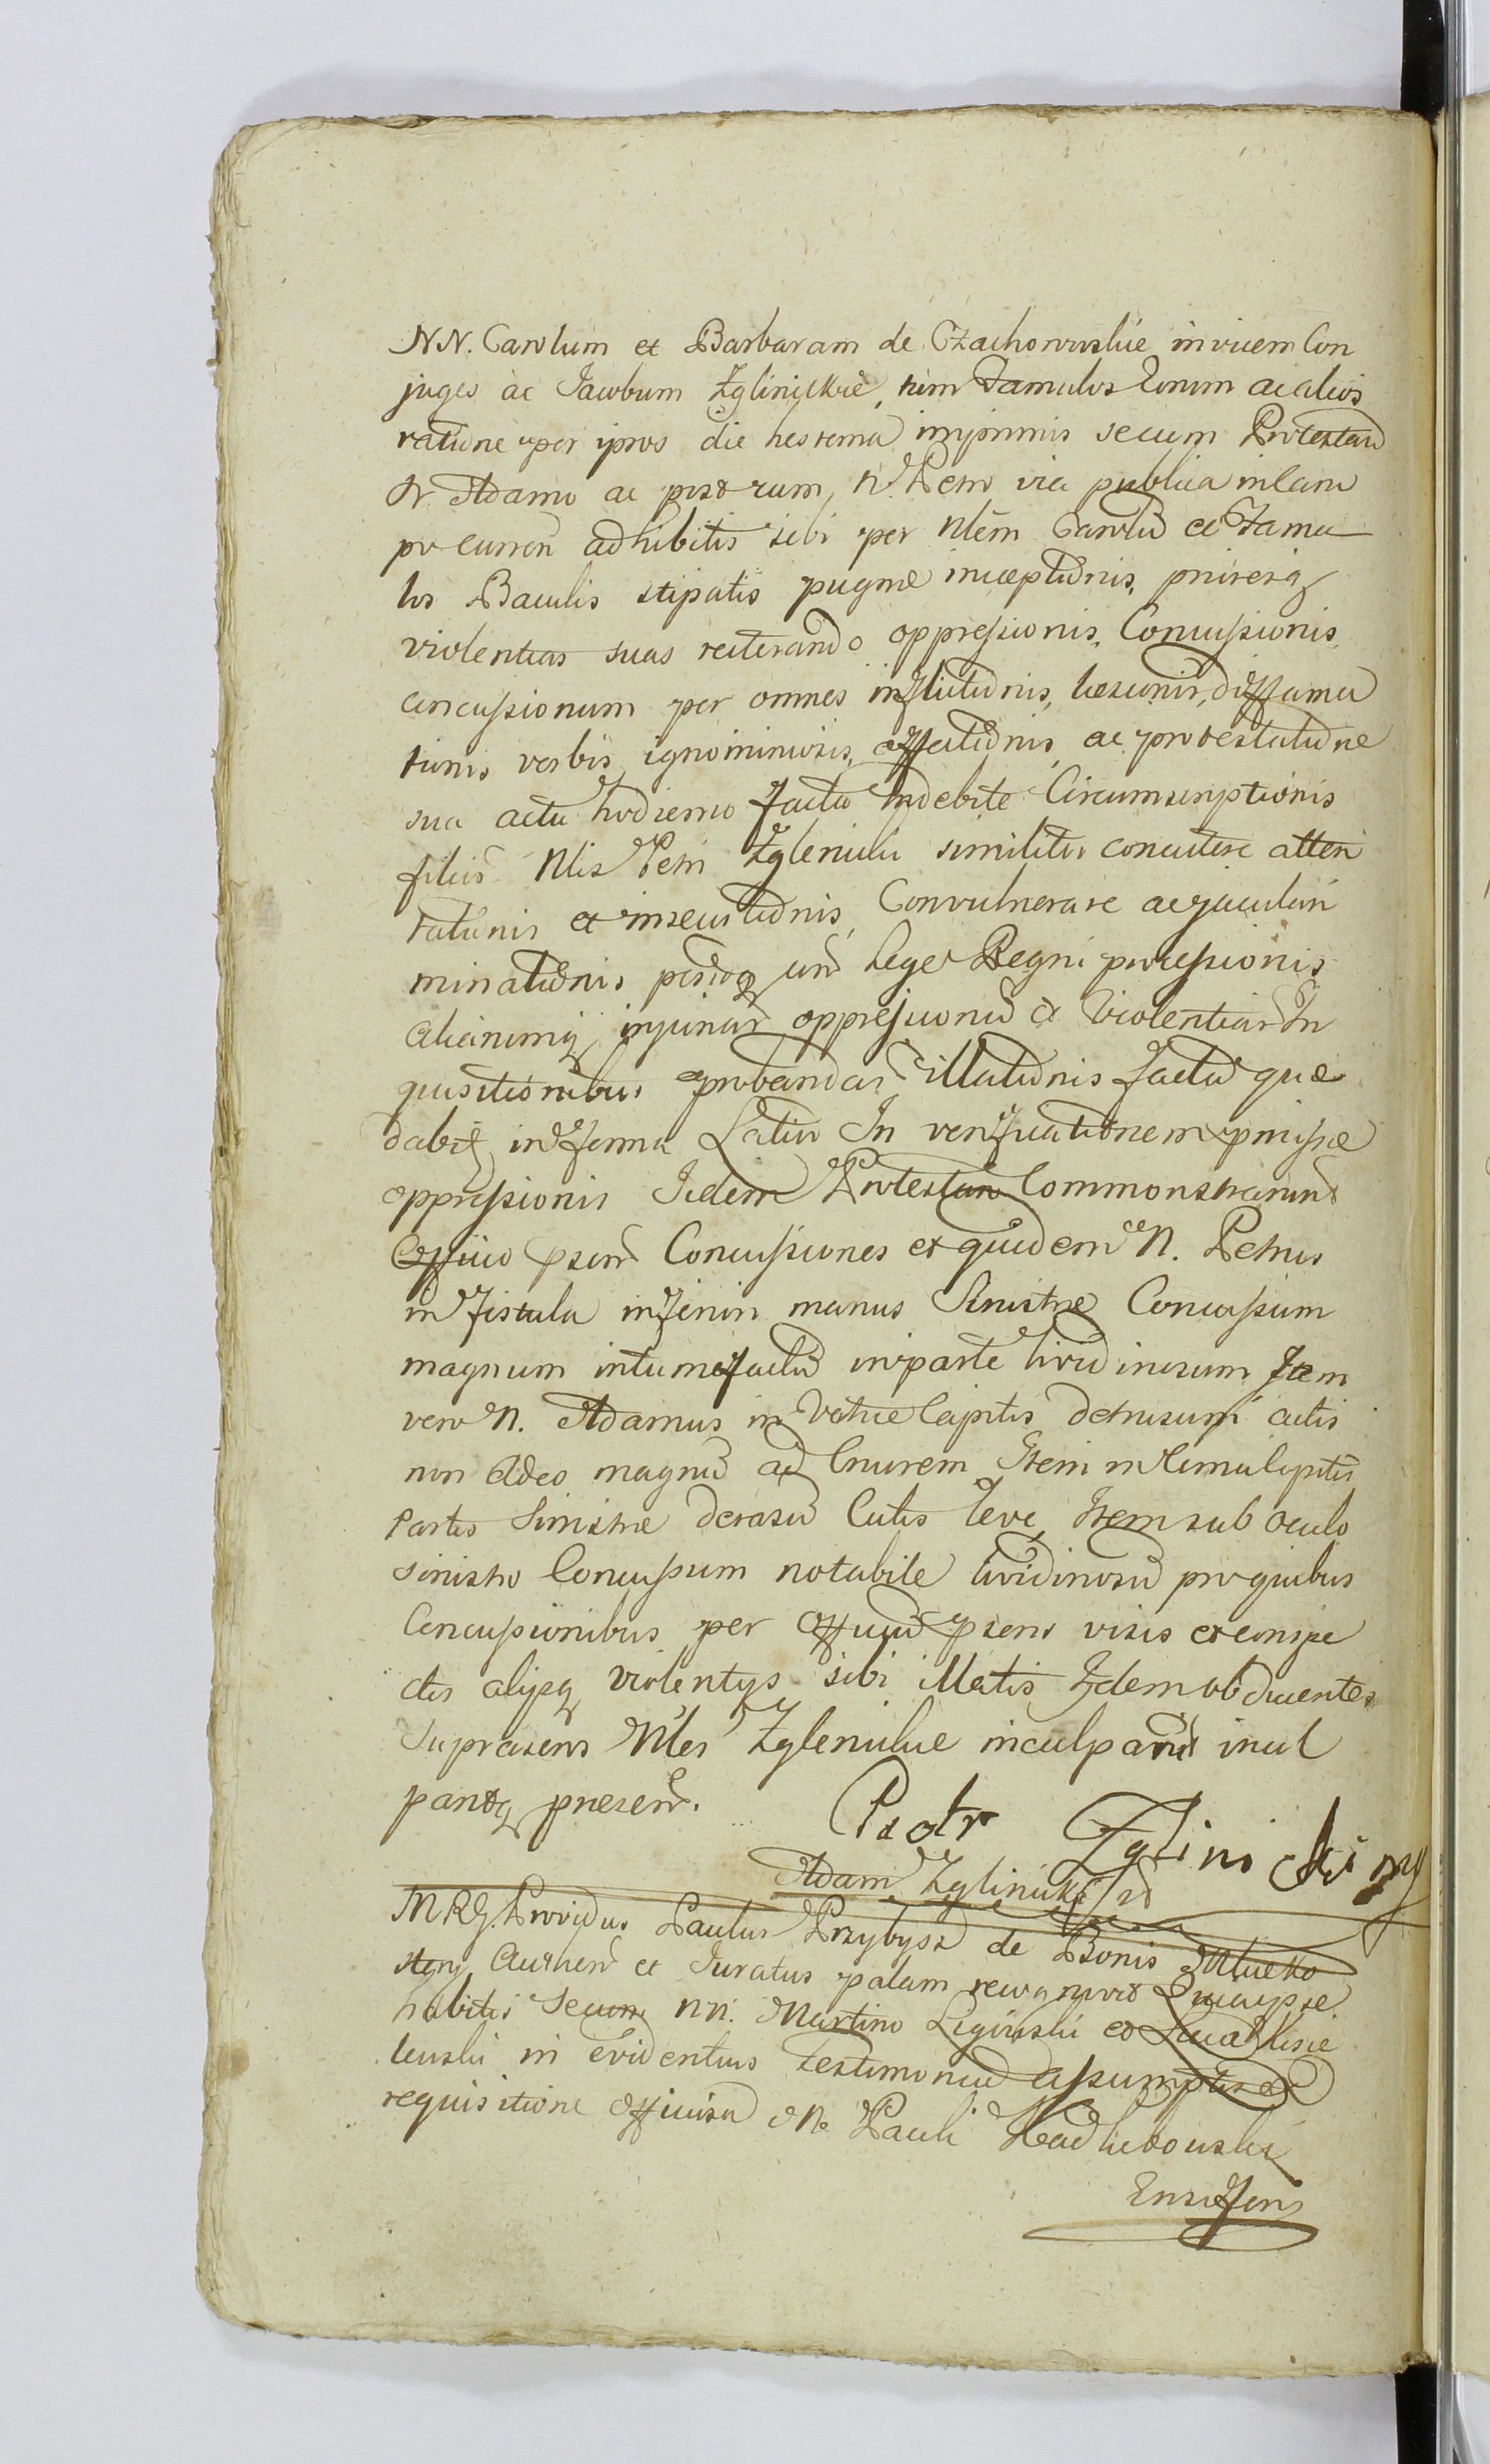 NN. Carolum et Barbaram de Czachorowskie invicem Con
juges ac Jacobum Zglinickie, tum Famulos Eorum ac alios
ratione per ipsos die hesterna imprimis secum Protestan
N. Adamo ac post eum, N. Petro via publica
pro Curren adhibitis sibi per Nlem Carolu et Famu
los Baculis stipatis pugnae inceptionis,
violentias suas reiterando oppressionis, Concussionis,
concussionum per omnes inflictionis, laesionis, diffama
tionis verbis ignominiosis, affectionis, ac protestatione
sua actu hodierno facta Indebite Circumscriptionis
filius Nlis Petri Zglenicki similiter concutere atten
tationis et insecutionis, Convulnerare ac jaculari
minationis Lege Regni processionis
aliarumq injuriar oppressionu et violentiar In
quisitionibus probandar illationis factu quae
dabit inferma Latius In verificationem pmissae
oppressionis Iidem Protestan Commonstrarunt
Officio psenti Concussiones et quidem N. Petrus
in fistula inferiori manus Sinistrae Concussum
magnum intumefactu in parte livid inosum Item
vero N. Adamus in Vertice Capitis detrusum cutis
non adeo magnu ad Cruorem Item in Capitis
Partis Sinistrae derasu Cutis leve, Item sub oculo
sinistro Concussum notabile lividinosu pro quibus
Concussionibus per Officiu psens visis et conspe
ctis alijsq violentijs sibi illatis Iidem obducentes
suprascrip Nles Zglenickie inculparut incul
pantq praesen.
Piotr Zglinicki mp
Adam Zglinicki
MRG. Providus Paulus Przybysz de Bonis
steny Authen et Juratus palam recognovit
habitis Secum NN. Martino
in evidentius testimoniu assumptis ex
requisitione officiosa N. Pauli